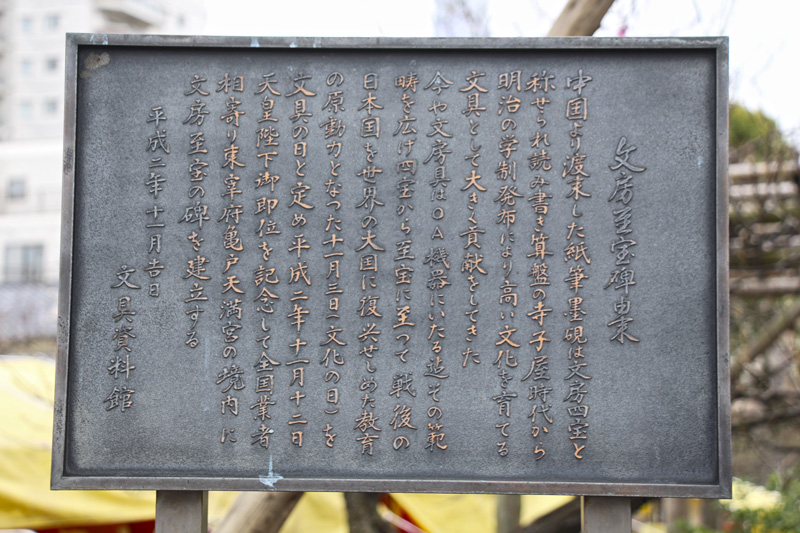 文房至宝碑由来
中国より渡来した紙筆墨硯は文房四宝と
称せられ読み書き算盤の寺子屋時代から
明治の学制発布により高い文化を育てる
文具として大きく貢献をしてきた
今や文房具はOA機器にいたる迄その範
疇を広げ四宝から至宝に至つて戦後の
日本国を世界の大国に復興せしめた教育
の原動力となつた十一月三日(文化の日)を
文具の日と定め平成二年十一月十二日
天皇陛下御即位を記念して全国業者
相寄り東宰府亀戸天満宮の境内に
文房至宝の碑を建立する
平成二年十一月吉日
文具資料館